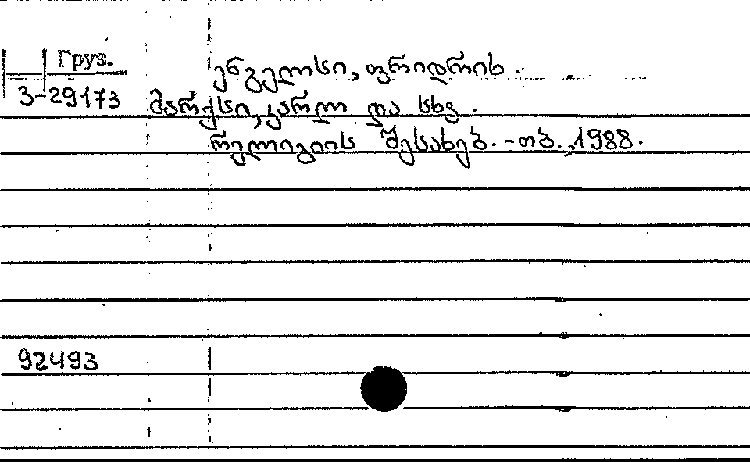 Груз.
ენგელსი, ფრიდრიხ.
3-29173 მარქსი, კარლ და სხვ.
რელიგიის შესახებ. - თბ., 1988.
92493